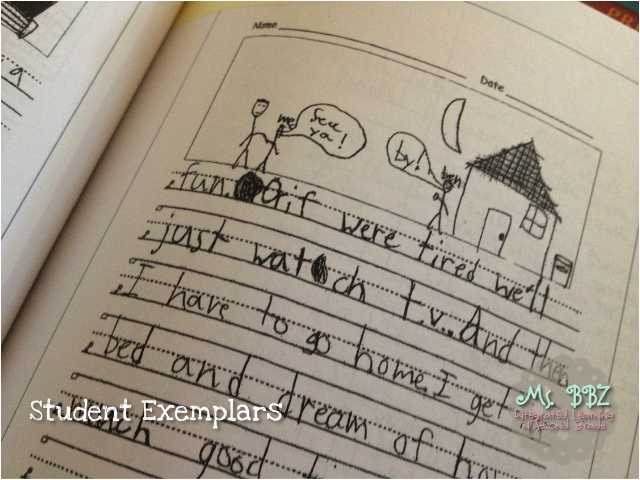 Name
Date
me
See
ya!
by!
fun. Or if were tired we'll
just watch t.v.. And then
I have to go home. I get
bed and dream of
good
Student Exemplars
Ms. BBZ
Integrated Learning
in Second Grade